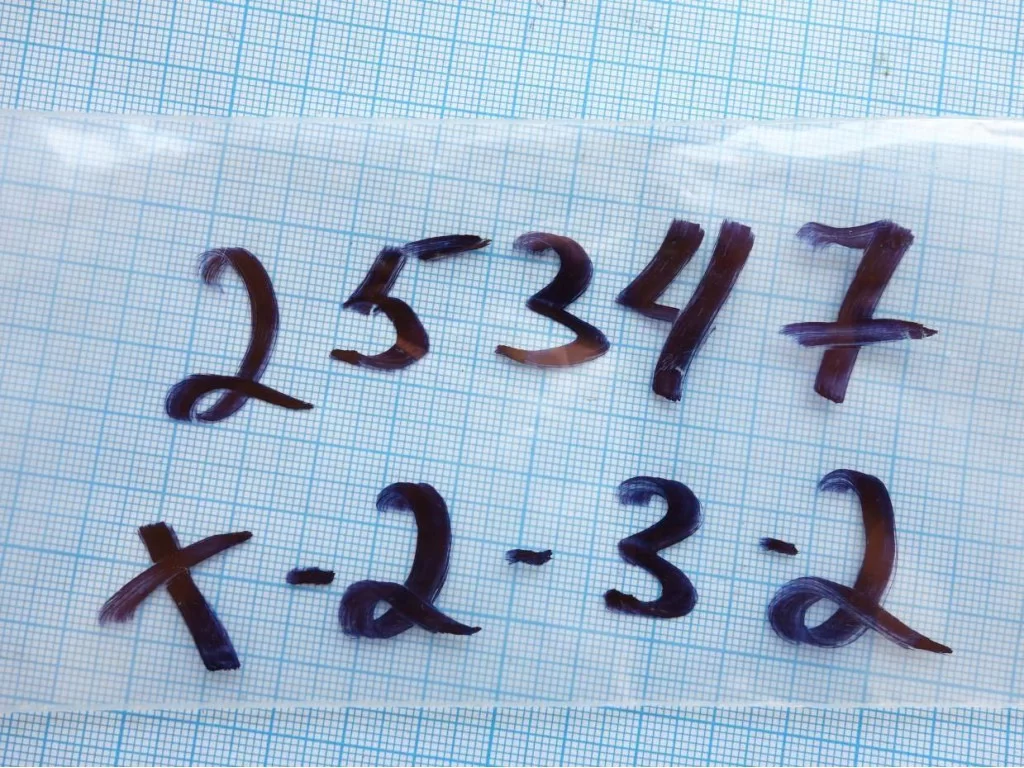 25347
x-2-3-2